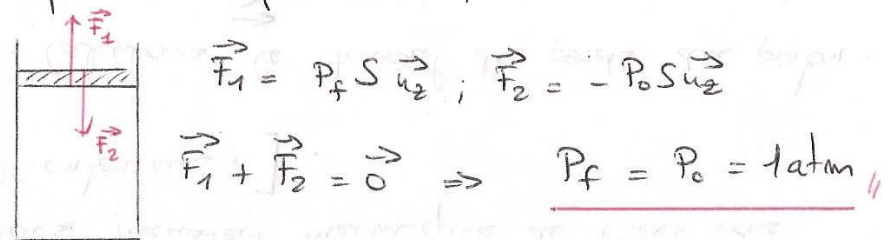 F⃗₁
F⃗₁ = P_f S u⃗_z ; F⃗₂ = - P₀ S u⃗_z
F⃗₂
F⃗₁ + F⃗₂ = 0⃗ => P_f = P₀ = 1 atm